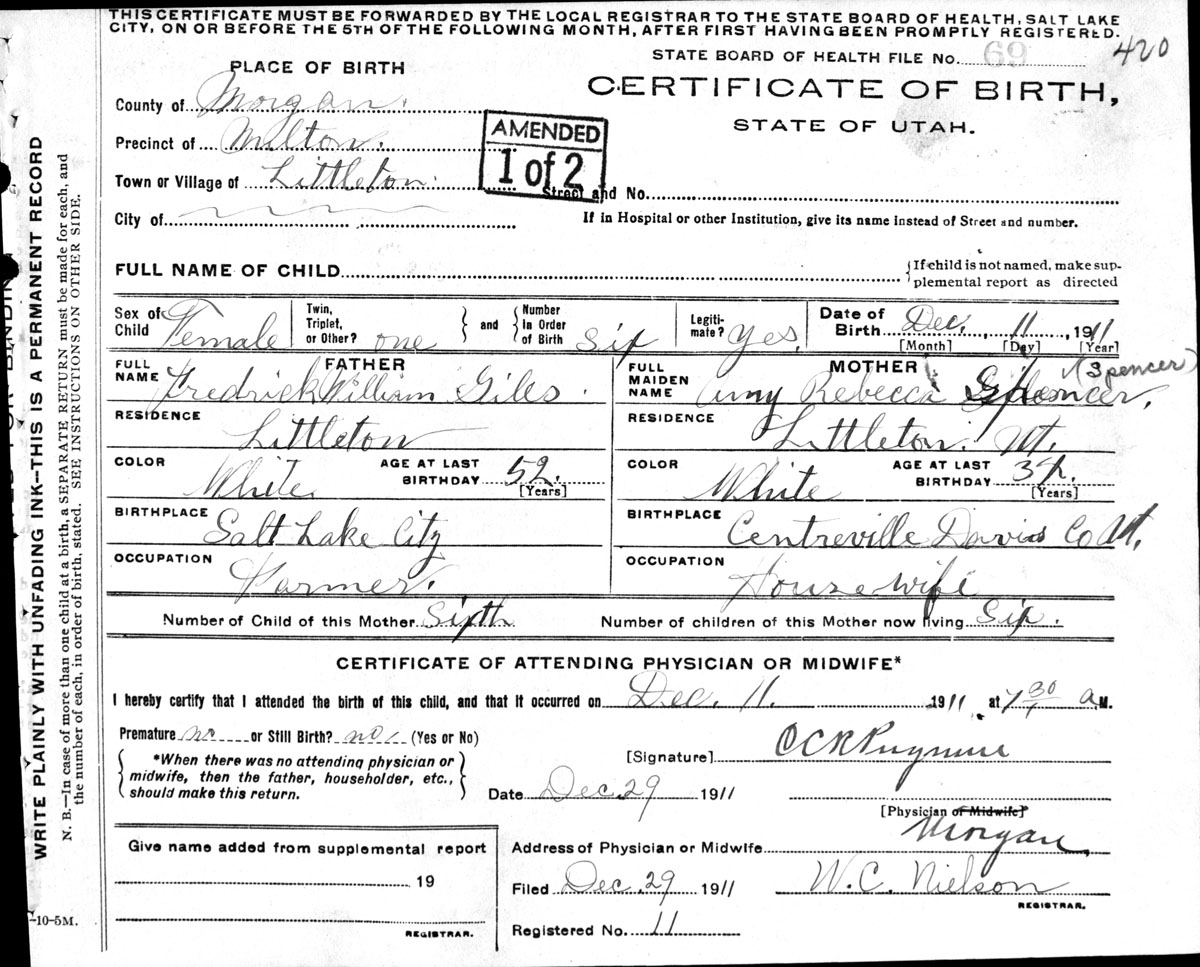 THIS CERTIFICATE MUST BE FORWARDED BY THE LOCAL REGISTRAR TO THE STATE BOARD OF HEALTH, SALT LAKE
CITY, ON OR BEFORE THE 5TH OF THE FOLLOWING MONTH, AFTER FIRST HAVING BEEN PROMPTLY REGISTERED.
STATE BOARD OF HEALTH FILE No. 69 420
PLACE OF BIRTH
CERTIFICATE OF BIRTH,
STATE OF UTAH.
County of Morgan.
AMENDED
1 of 2
Precinct of Milton.
Town or Village of Littleton.
Street and No.
City of
If in Hospital or other Institution, give its name instead of Street and number.
FULL NAME OF CHILD {If child is not named, make sup-
plemental report as directed
Sex of Child Female Twin, Triplet, or Other? one } and { Number In Order of Birth Six Legiti-mate? Yes, Date of Birth Dec. 11 1911
[Month] [Day] [Year]
FATHER MOTHER (Spencer)
FULL NAME Fredrick William Giles. FULL MAIDEN NAME Amy Rebecca Spencer,
RESIDENCE Littleton RESIDENCE Littleton. Ut.
COLOR White. AGE AT LAST BIRTHDAY 52. [Years] COLOR White AGE AT LAST BIRTHDAY [Years]
BIRTHPLACE Salt Lake City BIRTHPLACE Centreville Davis Co Ut.
OCCUPATION Farmer. OCCUPATION Housewife
Number of Child of this Mother Sixth Number of children of this Mother now living Six.
CERTIFICATE OF ATTENDING PHYSICIAN OR MIDWIFE*
I hereby certify that I attended the birth of this child, and that it occurred on Dec. 11. 1911, at 7 30 a.M.
Premature no or Still Birth? no (Yes or No)
[Signature]
{ *When there was no attending physician or
midwife, then the father, householder, etc.,
should make this return. }
Date Dec. 29 1911
[Physician or Midwife]
Address of Physician or Midwife Morgan
Filed Dec. 29 1911 W. C. Nielson
REGISTRAR.
Registered No. 11
Give name added from supplemental report
19
REGISTRAR.
-10-5M.
WRITE PLAINLY WITH UNFADING INK—THIS IS A PERMANENT RECORD
N. B.—In case of more than one child at a birth, a SEPARATE RETURN must be made for each, and
the number of each, in order of birth, stated. SEE INSTRUCTIONS ON OTHER SIDE.